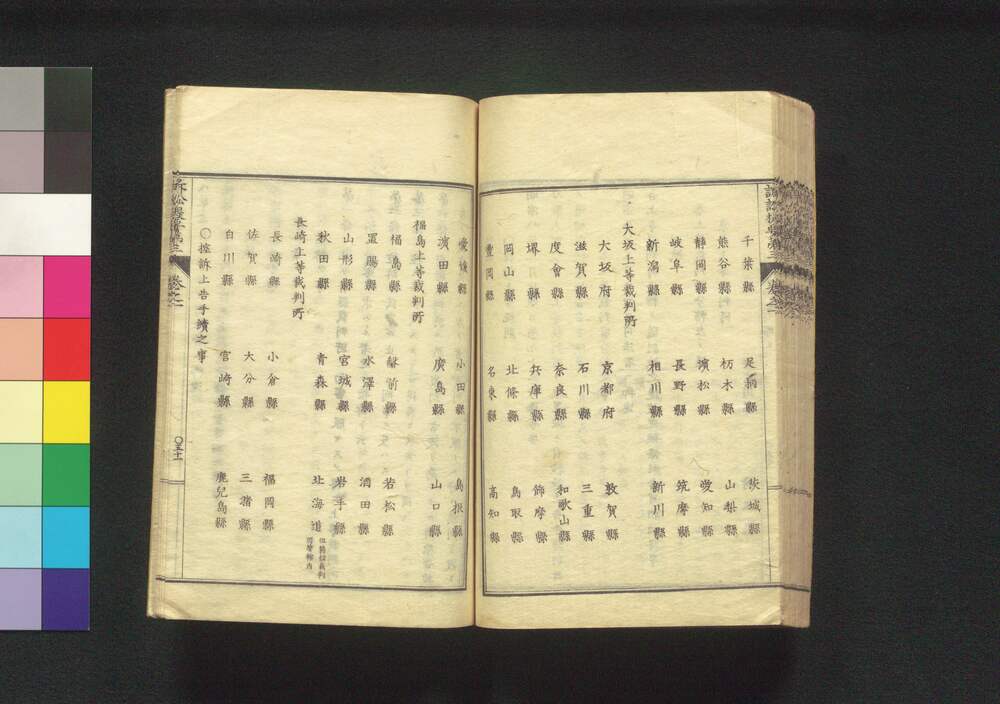 千葉縣 足柄縣 茨城縣
熊谷縣 栃木縣 山梨縣
靜岡縣 濱松縣 愛知縣
岐阜縣 長野縣 筑摩縣
新潟縣 相川縣 新川縣
大坂上等裁判所
大坂府 京都府 敦賀縣
滋賀縣 石川縣 三重縣
度會縣 奈良縣 和歌山縣
堺縣 兵庫縣 飾摩縣
岡山縣 北條縣 鳥取縣
豊岡縣 名東縣 高知縣
愛媛縣 小田縣 島根縣
濱田縣 廣島縣 山口縣
福島上等裁判所
福島縣 磐前縣 若松縣
置賜縣 水澤縣 酒田縣
山形縣 宮城縣 岩手縣
秋田縣 青森縣 北海道
長崎上等裁判所
長崎縣 小倉縣 福岡縣
佐賀縣 大分縣 三瀦縣
白川縣 宮崎縣 鹿兒島縣
〇控訴上告手續之事
卷之二
〇五十一